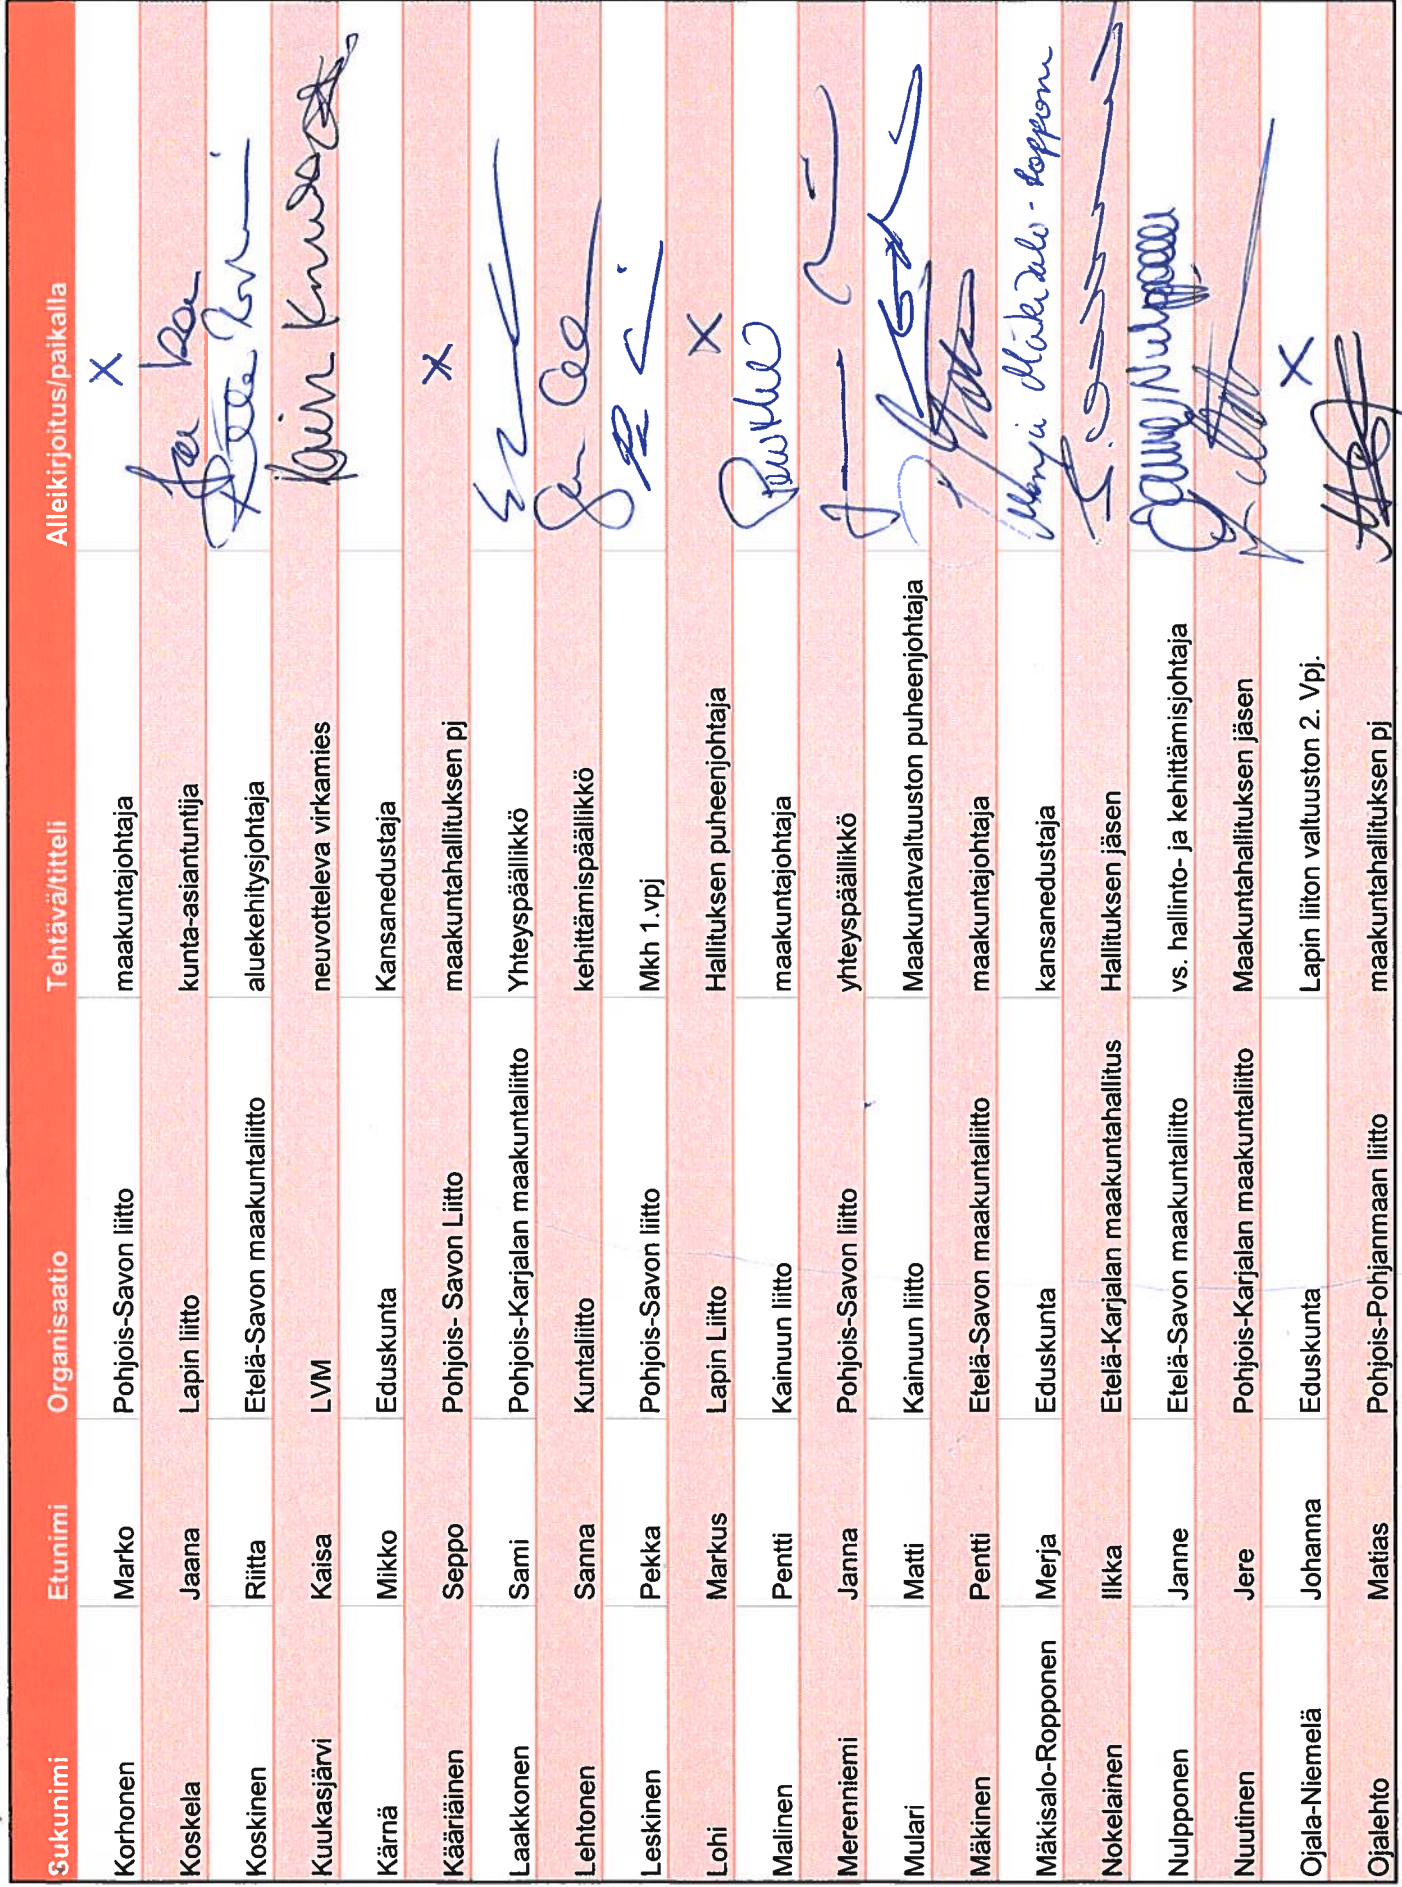 Sukunimi Etunimi Organisaatio Tehtävä/titteli Alleikirjoitus/paikalla
Korhonen Marko Pohjois-Savon liitto maakuntajohtaja X
Koskela Jaana Lapin liitto kunta-asiantuntija
Koskinen Riitta Etelä-Savon maakuntaliitto aluekehitysjohtaja
Kuukasjärvi Kaisa LVM neuvotteleva virkamies
Kärnä Mikko Eduskunta Kansanedustaja
Kääriäinen Seppo Pohjois- Savon Liitto maakuntahallituksen pj X
Laakkonen Sami Pohjois-Karjalan maakuntaliitto Yhteyspäällikkö
Lehtonen Sanna Kuntaliitto kehittämispäällikkö
Leskinen Pekka Pohjois-Savon liitto Mkh 1.vpj
Lohi Markus Lapin Liitto Hallituksen puheenjohtaja X
Malinen Pentti Kainuun liitto maakuntajohtaja
Merenniemi Janna Pohjois-Savon liitto yhteyspäällikkö
Mulari Matti Kainuun liitto Maakuntavaltuuston puheenjohtaja
Mäkinen Pentti Etelä-Savon maakuntaliitto maakuntajohtaja
Mäkisalo-Ropponen Merja Eduskunta kansanedustaja Merja Mäkisalo-Ropponen
Nokelainen Ilkka Etelä-Karjalan maakuntahallitus Hallituksen jäsen
Nulpponen Janne Etelä-Savon maakuntaliitto vs. hallinto- ja kehittämisjohtaja Janne Nulpponen
Nuutinen Jere Pohjois-Karjalan maakuntaliitto Maakuntahallituksen jäsen
Ojala-Niemelä Johanna Eduskunta Lapin liiton valtuuston 2. Vpj. X
Ojalehto Matias Pohjois-Pohjanmaan liitto maakuntahallituksen pj